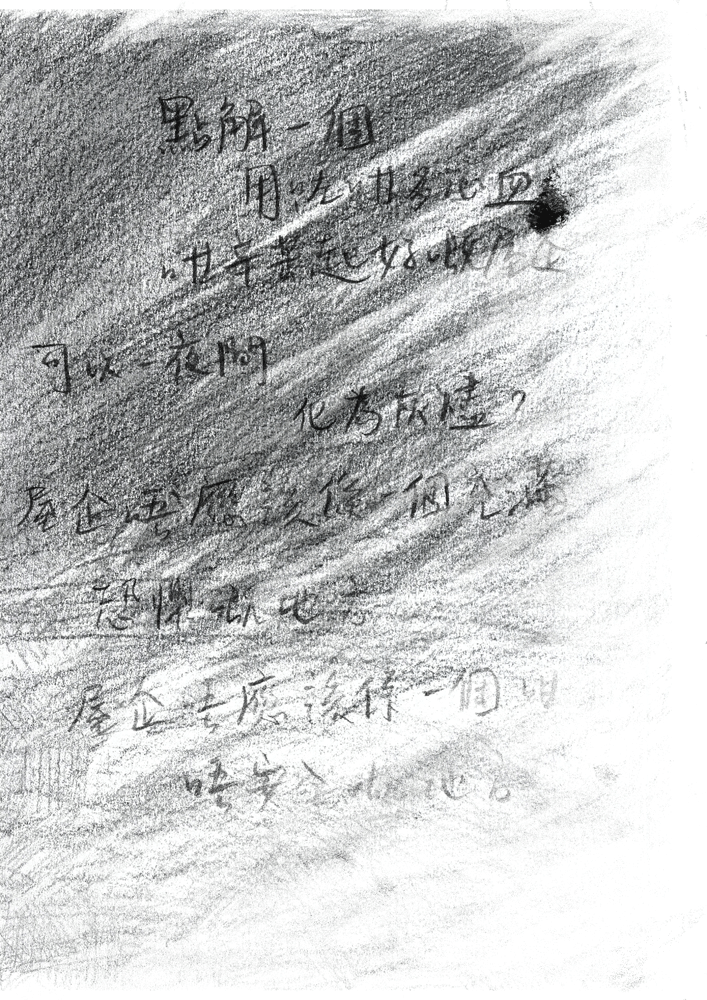 點解一個
用咗咁多心血
咁辛苦起好嘅屋企
可以一夜間
化為灰燼？
屋企唔應該係一個充滿
恐懼嘅地方
屋企唔應該係一個咁
唔安全嘅地方